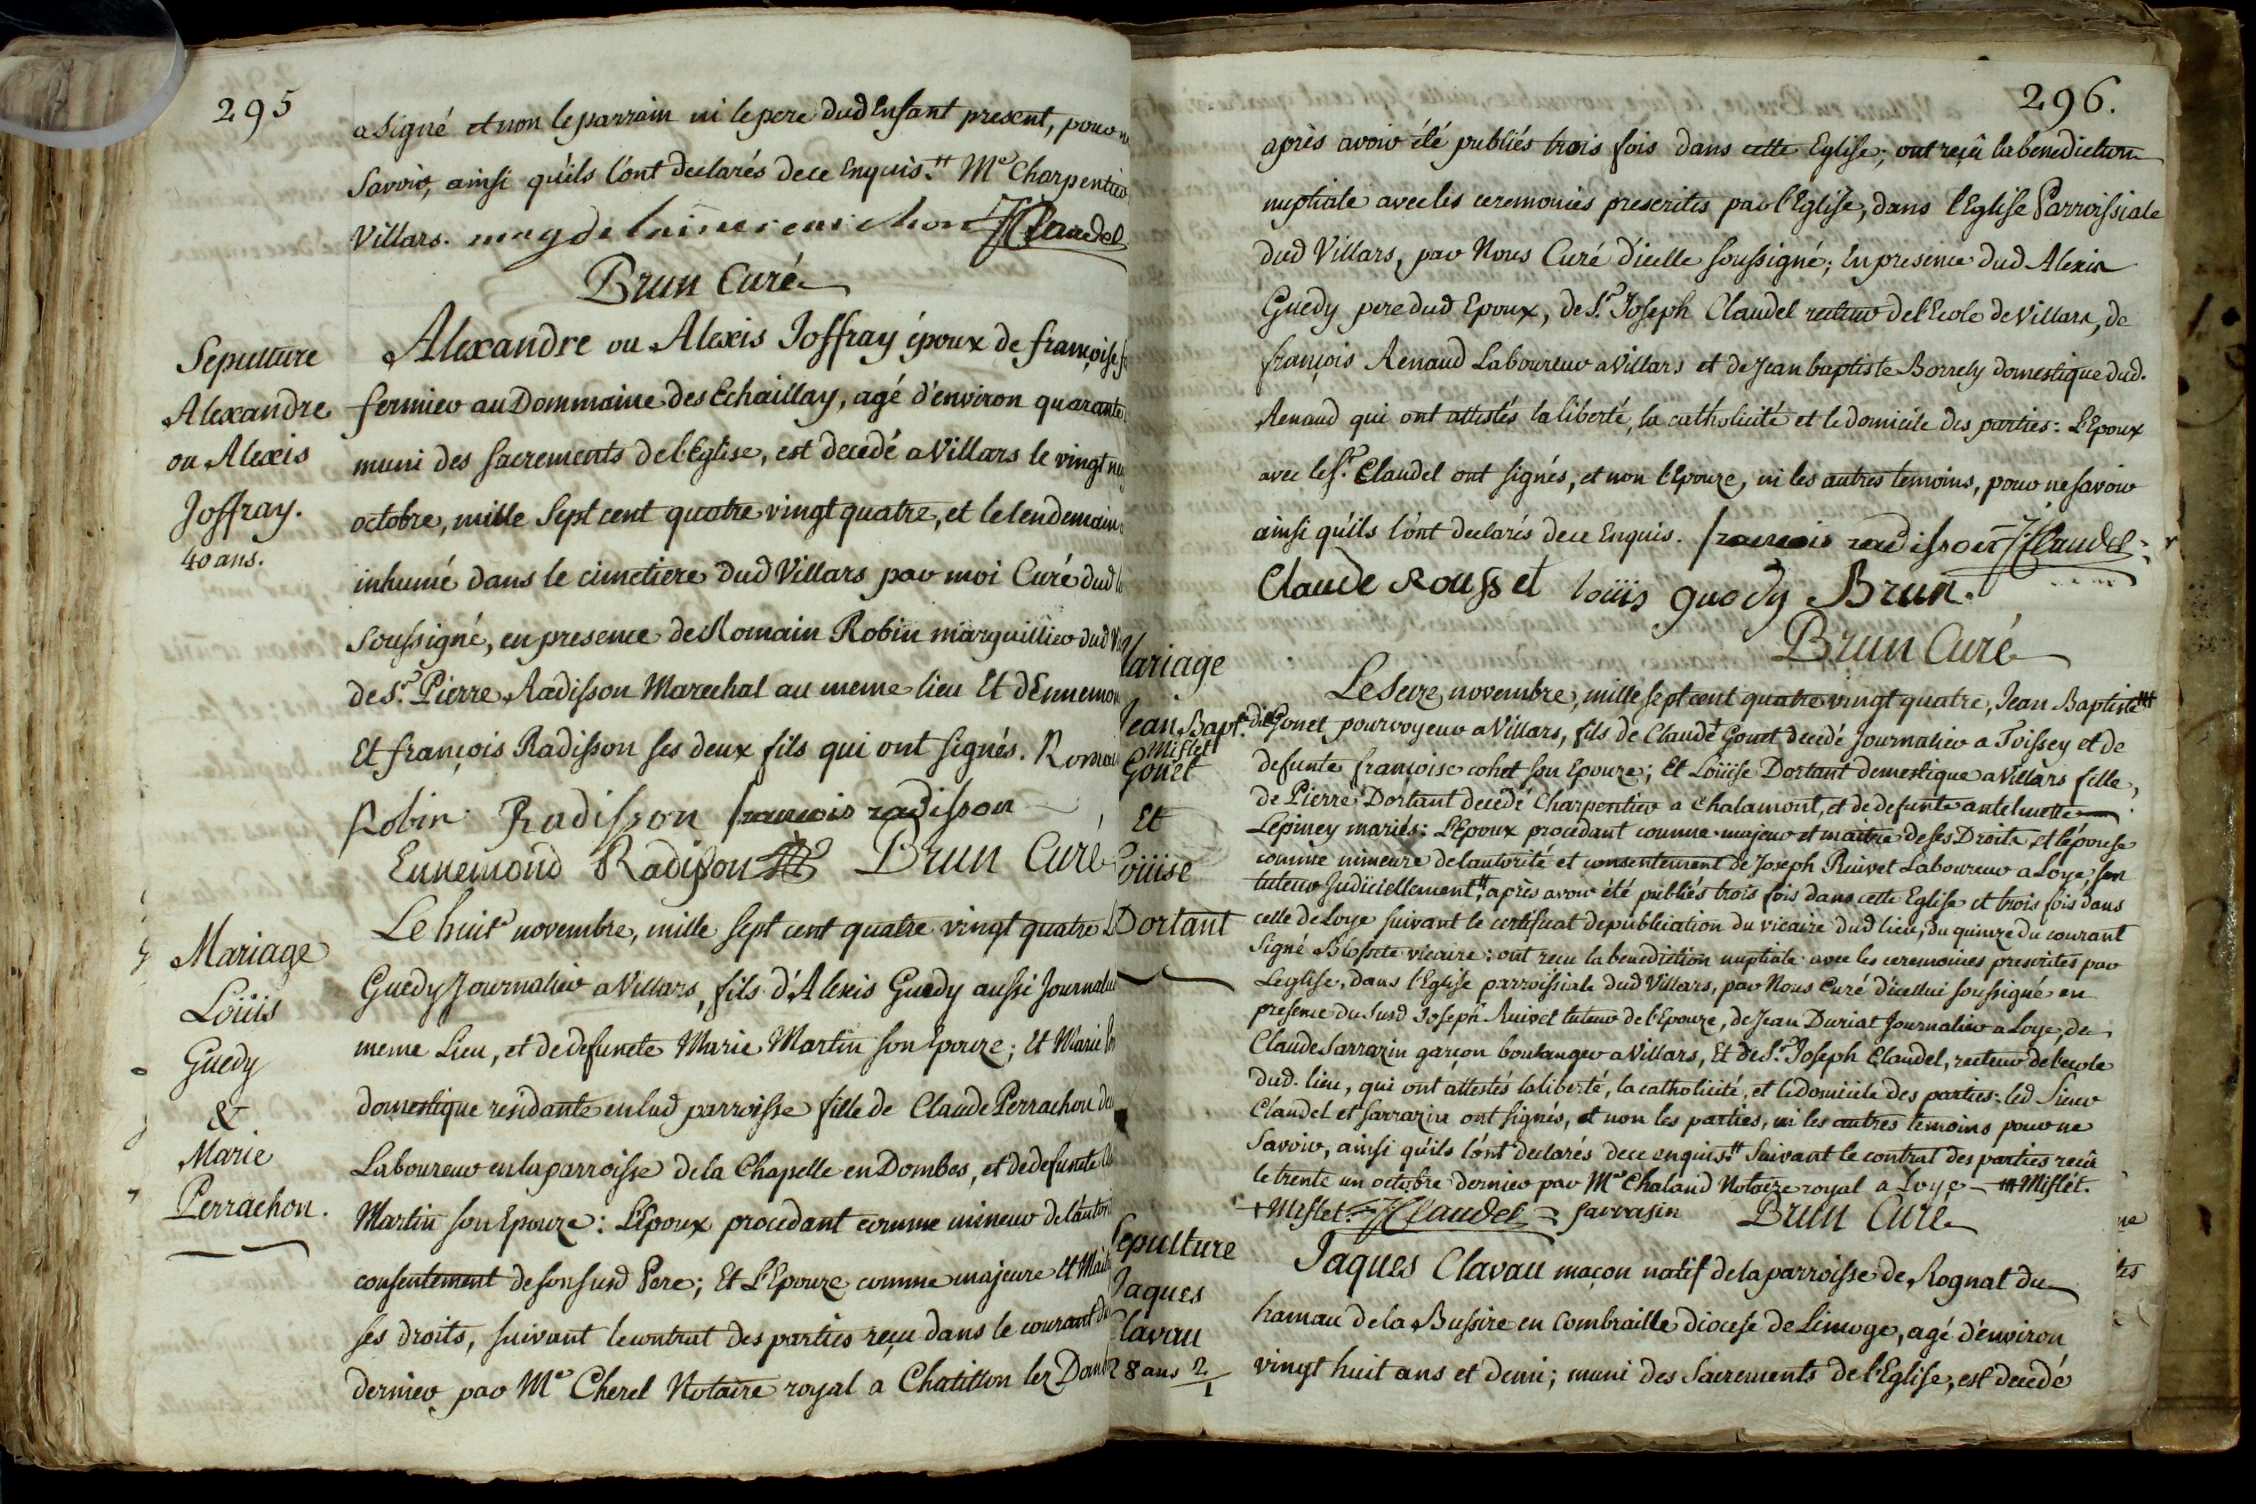 295
a signé et non le parrain ni le pere dud Enfant present, pour
Savoir, ainsi qu'ils l'ont declarés de ce Enquis.tt Me Charpentier
Villars. J Claudel
Brun Curé
Sepulture
Alexandre
ou Alexis
Joffray.
40 ans.
Alexandre ou Alexis Joffray époux de françoise
fermier au Dommaine des Echaillay, agé d'environ quarante
muni des sacrements de l'Eglise, est decedé a Villars le vingt
octobre, mille Sept cent quatre vingt quatre, et le lendemain
inhumé dans le cimetiere dud Villars par moi Curé dud
Soussigné, en presence de Romain Robin marguillier dud
de Sr. Pierre Radisson Marechal au meme lieu Et d'Ennemon
Et françois Radisson ses deux fils qui ont signés. Romai
Robin Radisson francois radisson
Ennemond Radisson Brun Curé
Mariage
Loüis
Guedy
&
Marie
Perrachon.
Le huit novembre, mille sept cent quatre vingt quatre
Guedy Journalier a Villars, fils d'Alexis Guedy aussi Journalier
meme Lieu, et de defuncte Marie Martin son Epouze; Et Marie
domestique residante en lad parroisse fille de Claude Perrachon
Laboureur en la parroisse de la Chapelle en Dombes, et de defuncte
Martin son Epouze: L'Epoux procedant comme mineur de l'autori
consentement de son susd Pere; Et L'Epouze comme majeure Et Mait
ses droits, suivant le contrat des parties reçu dans le courant
dernier par Me Cherel Notaire royal a Chatillon lez Domb
296.
après avoir été publiés trois fois dans cette Eglise; ont reçû la benediction
nuptiale avec les ceremonies prescrites par l'Eglise, dans l'Eglise Parroissiale
dud Villars, par Nous Curé d'icelle soussigné; En presence dud Alexis
Guedy pere dud Epoux, de Sr. Joseph Claudel recteur de l'Ecole de Villars, de
françois Renaud Laboureur a Villars et de Jean baptiste Borrely domestique dud.
Renaud qui ont attestés la liberté, la catholicité et le domicile des parties: L'Epoux
avec le Sr. Claudel ont signés, et non l'Epouze, ni les autres temoins, pour ne savoir
ainsi qu'ils l'ont declarés de ce Enquis. francois radisson J Claudel
Claude Rousset loüis guedy Brun.
Brun Curé
Mariage
Jean Bapt.
Mislet
Gonet
Et
Loüise
Dortant
Le Seize novembre, mille sept cent quatre vingt quatre, Jean Baptiste
dit Gonet pourvoyeur a Villars, fils de Claude Gonet decedé Journalier a Toissey et de
defunte françoise cohet son Epouze; Et Loüise Dortant domestique a Villars fille
de Pierre Dortant decedé Charpentier a Chalamont, et de defunte antelmette
Lepiney mariés: L'Epoux procedant comme majeur et maitre de ses Droits, et l'épouse
comme mineure de l'autorité et consentement de Joseph Ruivet Laboureur a Loye, son
tuteur Judiciellement.tt après avoir été publiés trois fois dans cette Eglise et trois fois dans
celle de Loye suivant le certificat de publication du vicaire dud lieu, du quinze du courant
Signé vicaire: ont recu la benediction nuptiale avec les ceremonies prescrites par
L'eglise, dans l'Eglise parroissiale dud Villars, par Nous Curé d'icellui soussigné en
presence du Susd Joseph Ruivet tuteur de l'Epouze, de Jean Duriat Journalier a Loye, de
Claude Sarrazin garçon boulanger a Villars, Et de Sr. Joseph Claudel, recteur de l'ecole
dud. lieu, qui ont attestés la liberté, la catholicité, et le domicile des parties; led Sieur
Claudel et Sarrazin ont signés, et non les parties, ni les autres temoins pour ne
Savoir, ainsi qu'ils l'ont declarés de ce enquis.tt Suivant le contrat des parties recû
le trente un octobre dernier par Me Chaland Notaire royal a Loye Mislet.
+ Mislet. J Claudel Sarrasin Brun Curé
Sepulture
Jaques
Clavau
28 ans 1/2
Jaques Clavau maçon natif de la parroisse de Rognat du
hamau de la Bussire en Combraille diocese de Limoge, agé d'environ
vingt huit ans et demi; muni des Sacrements de l'Eglise, est decedé